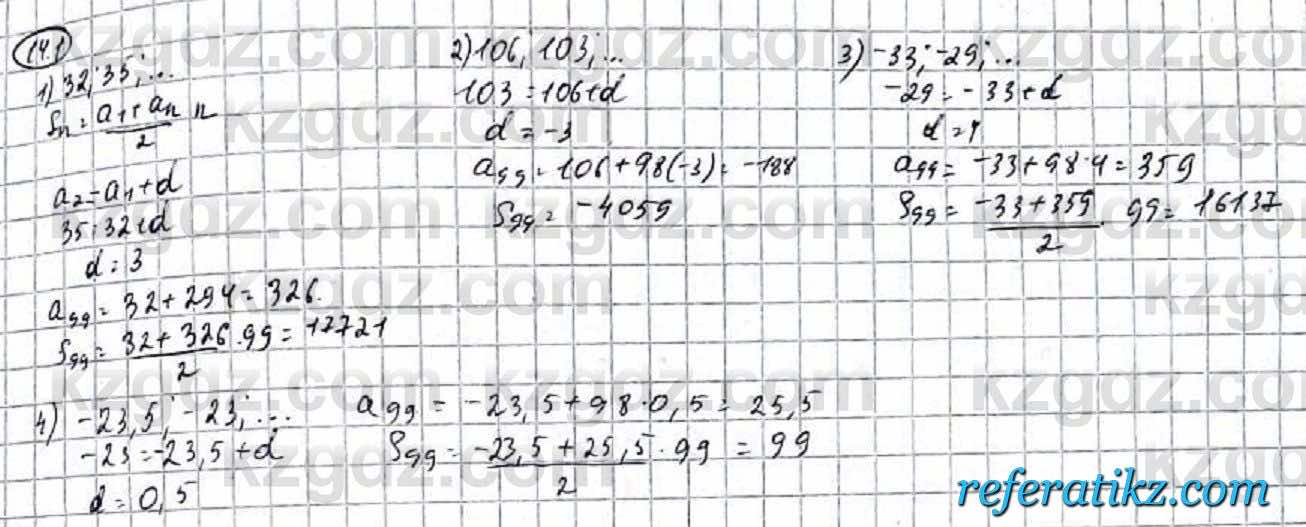 14.1
1) 32; 35; ...
Sn = a1 + an / 2 n
a2 = a1 + d
35 = 32 + d
d = 3
a99 = 32 + 294 = 326.
S99 = 32 + 326 / 2 · 99 = 17721
2) 106, 103; ...
103 = 106 + d
d = -3
a99 = 106 + 98(-3) = -188
S99 = -4059
3) -33; -29; ...
-29 = -33 + d
d = 4
a99 = -33 + 98 · 4 = 359
S99 = -33 + 359 / 2 · 99 = 16137
4) -23,5; -23; ...
-23 = -23,5 + d
d = 0,5
a99 = -23,5 + 98 · 0,5 = 25,5
S99 = -23,5 + 25,5 / 2 · 99 = 99
kzgdz.com
referatikz.com